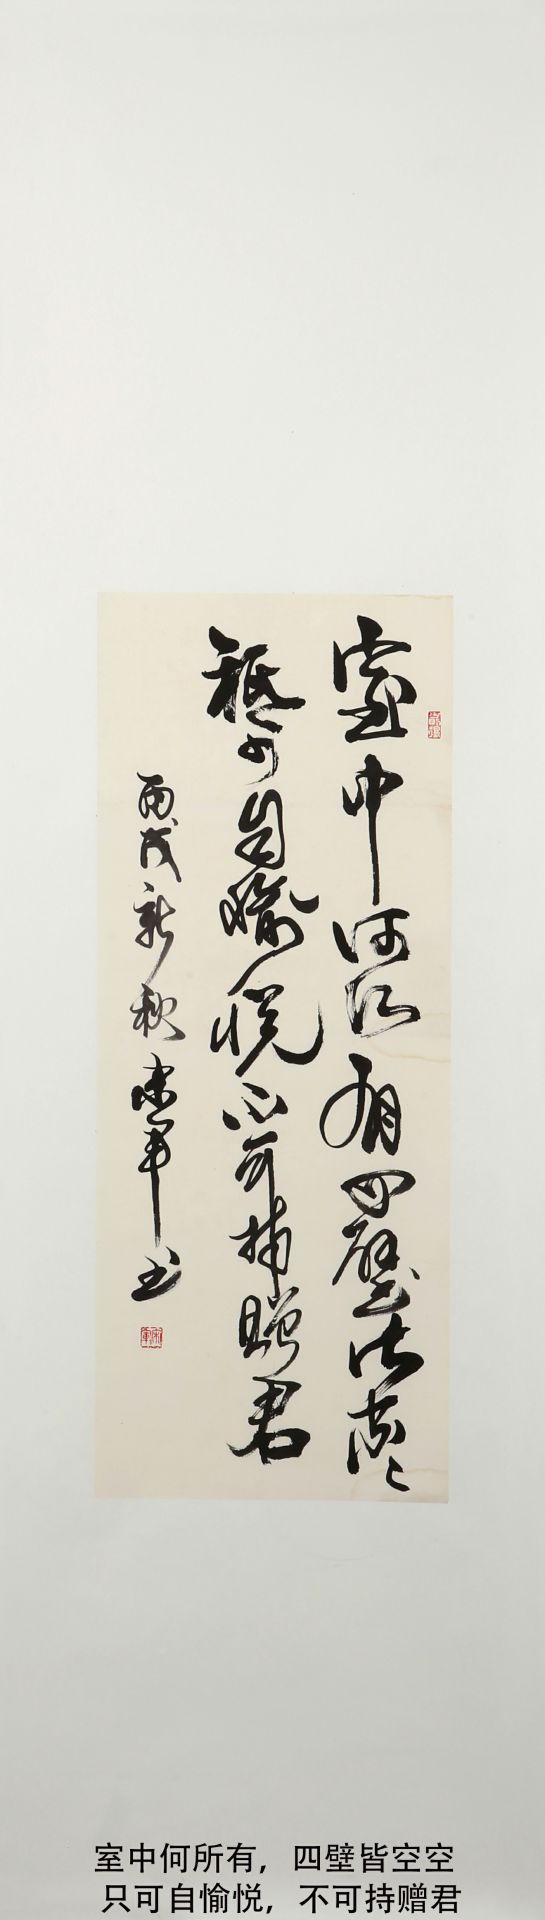 室中何所有四壁皆空空
祗可自愉悦不可持赠君
丙戌新秋建军书
室中何所有，四壁皆空空
只可自愉悦，不可持赠君